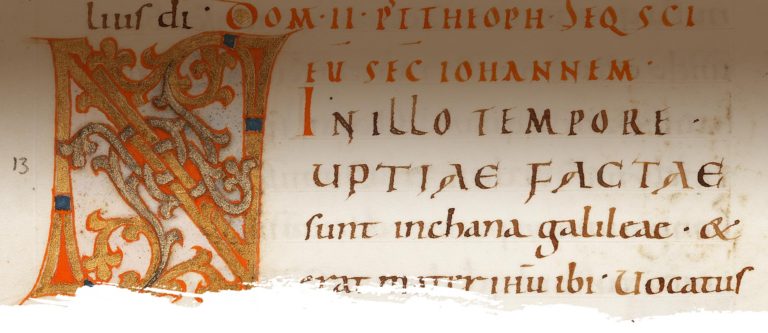 lius di · DOM · II · P᷑ T THEOPH · SEQ SCI
EU SEC IOHANNEM ·
IN ILLO TEMPORE ·
13 NUPTIAE FACTAE
sunt inchana galileae · &
erat mater ihū ibi · Uocatus